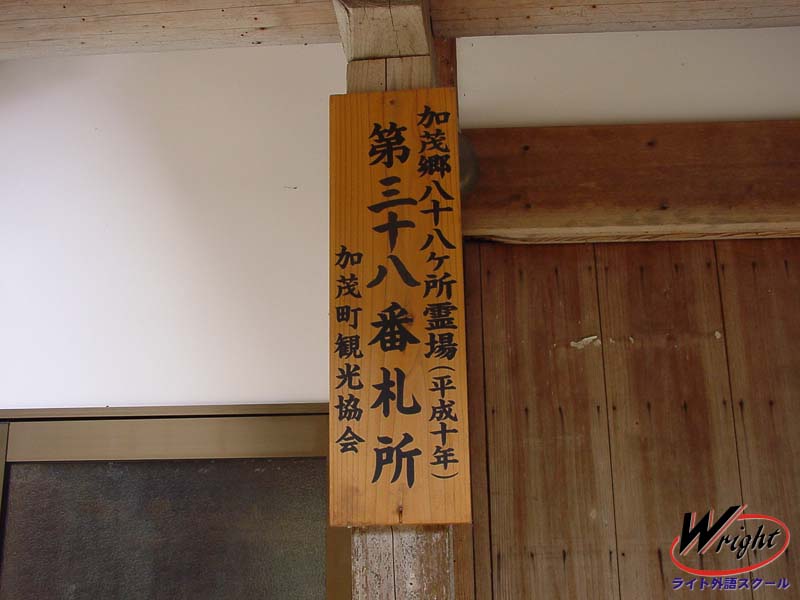 加茂郷八十八ヶ所霊場(平成十年)
第三十八番札所
加茂町観光協会
Wright
ライト外語スクール